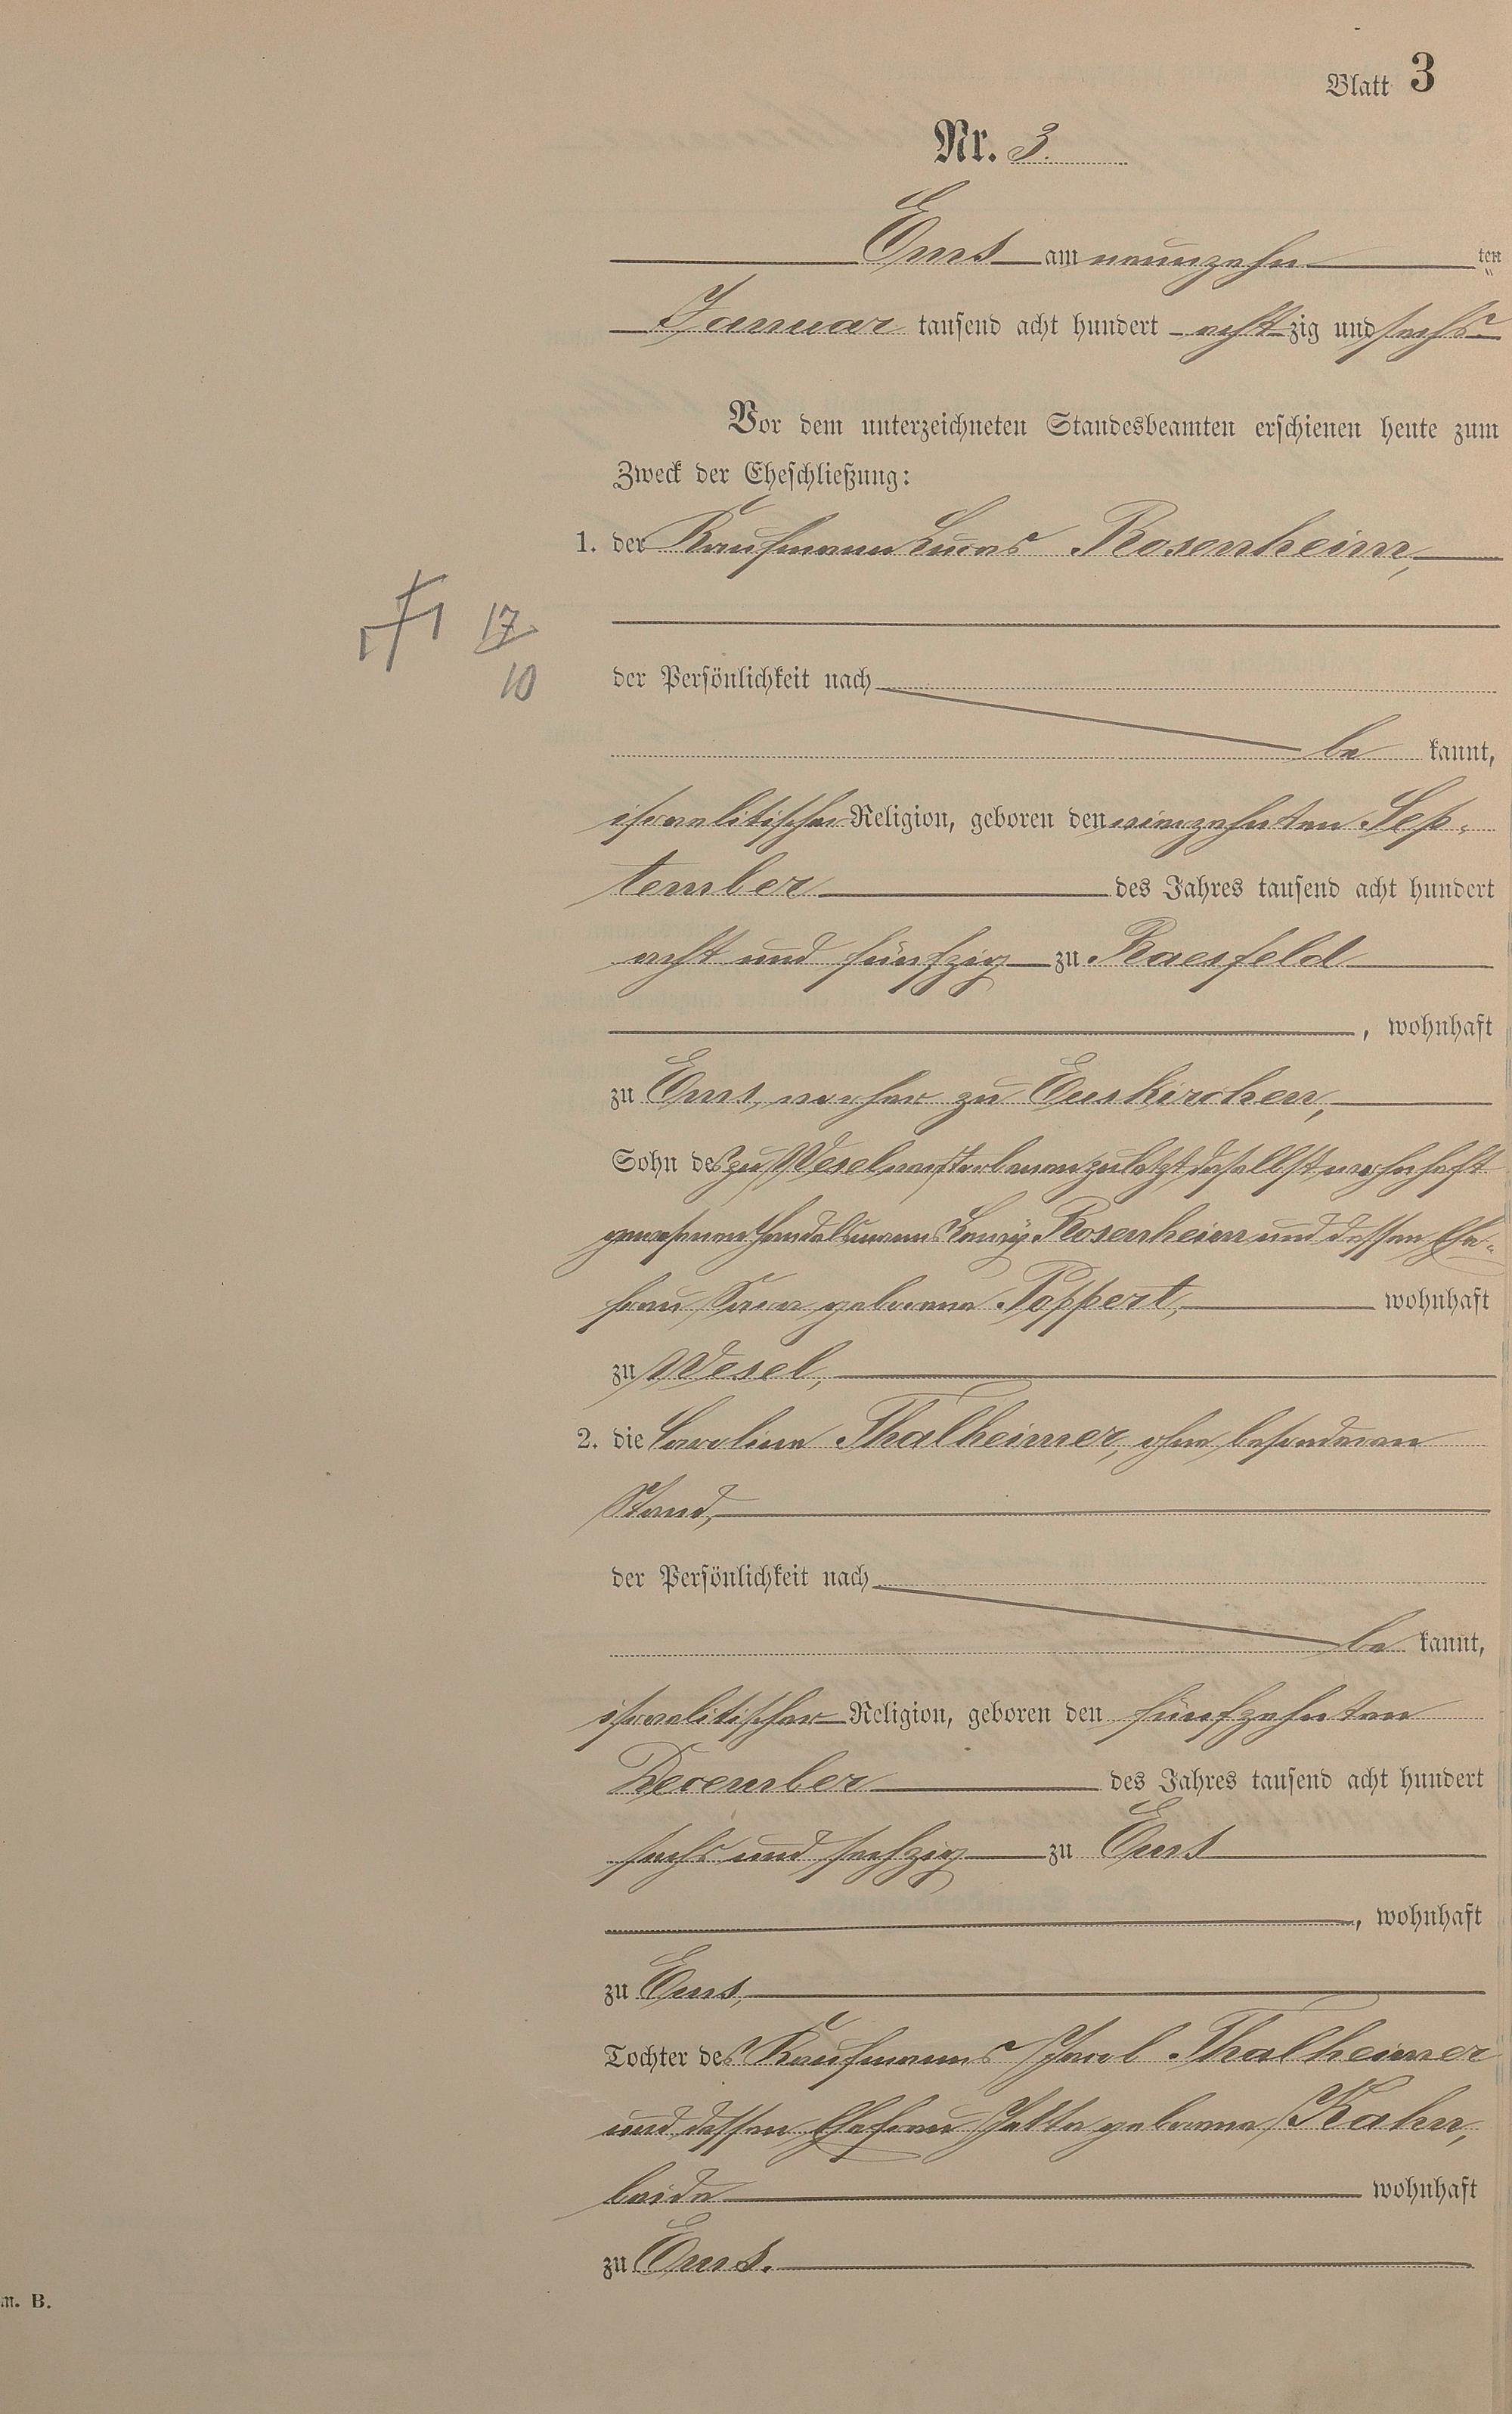 Blatt 3
Nr. 3.
Ems am neunzehn ten
Januar tausend acht hundert achtzig und sechs
Vor dem unterzeichneten Standesbeamten erschienen heute zum
Zweck der Eheschließung:
1. der Kaufmann Lucas Rosenheim,
17
10
der Persönlichkeit nach
be kannt,
israelitischer Religion, geboren den vierzehnten Sep-
tember des Jahres tausend acht hundert
acht und fünfzig zu Raesfeld
, wohnhaft
zu Ems, vorher zu Euskirchen,
Sohn des zu Wesel verstorbenen zuletzt daselbst wohnhaft
gewesenen Handelsmanns Rosenheim und dessen Ehe-
frau Sara geborene Poppert, wohnhaft
zu Wesel,
2. die Caroline Thalheimer, ohne besonderen
Stand,
der Persönlichkeit nach
be kannt,
israelitischer Religion, geboren den fünfzehnten
December des Jahres tausend acht hundert
sechs und sechzig zu Ems
, wohnhaft
zu Ems,
Tochter des Kaufmanns Thalheimer
und dessen Ehefrau geborene Kahn,
beide wohnhaft
zu Ems.
m. B.